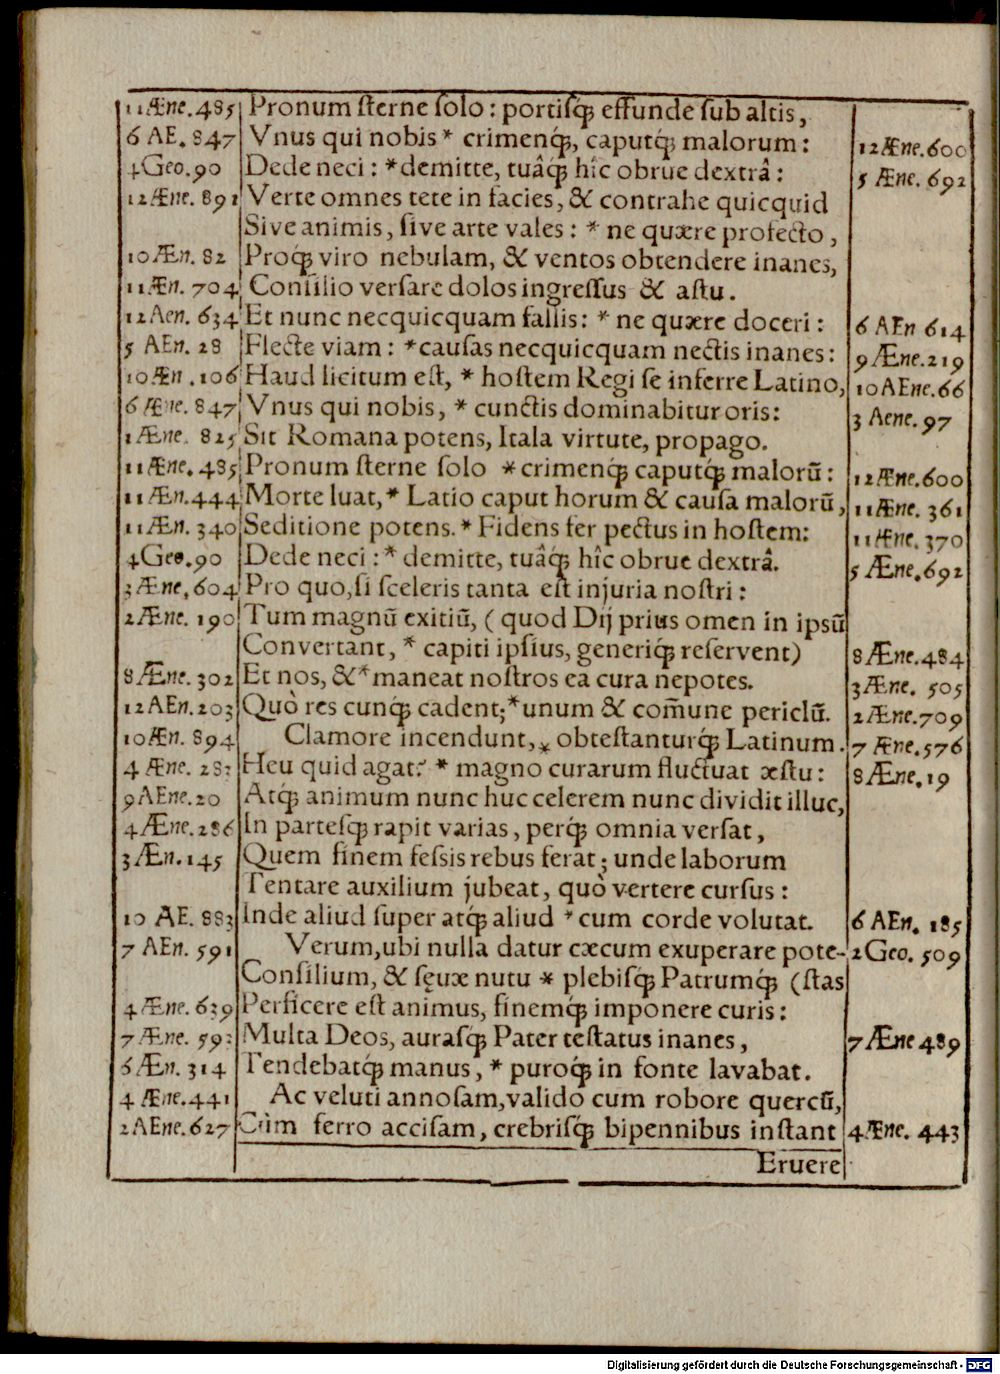 11Æne.485 Pronum sterne solo: portisq́; effunde sub altis,
6 AE. 847 Vnus qui nobis * crimenq́;, caputq́; malorum: 12Æne.600
4Geo.90 Dede neci: *demitte, tuâq́; hîc obrue dextrâ: 5 Æne. 692
12Æne. 891 Verte omnes tete in facies, & contrahe quicquid
Sive animis, sive arte vales: * ne quære profecto,
10Æn. 82 Proq́; viro nebulam, & ventos obtendere inanes,
11Æn. 704 Consilio versare dolos ingressus & astu.
12Aen. 634 Et nunc necquicquam fallis: * ne quære doceri: 6 AEn 614
5 AEn. 28 Flecte viam: *causas necquicquam nectis inanes: 9Æne.219
10Æn.106 Haud licitum est, * hostem Regi se inferre Latino, 10AEne.66
6 Æne. 847 Vnus qui nobis, * cunctis dominabitur oris: 3 Aene.97
1Æne. 825 Sit Romana potens, Itala virtute, propago.
11Æne.485 Pronum sterne solo *crimenq́; caputq́; malorū: 12Æne.600
11Æn.444 Morte luat,* Latio caput horum & causa malorū, 11Æne. 361
11Æn. 340 Seditione potens. * Fidens fer pectus in hostem: 11Æne. 370
4Geo.90 Dede neci: * demitte, tuâq́; hîc obrue dextrâ. 5 Æne.692
3Æne.604 Pro quo, si sceleris tanta est injuria nostri:
2Æne. 190 Tum magnū exitiū, (quod Dij prius omen in ipsū
Convertant, * capiti ipsius, generiq́; reservent) 8Æne.484
8Æne. 302 Et nos, &*maneat nostros ea cura nepotes. 3Æne. 505
12AEn.203 Quò res cunq́; cadent;*unum & com̄une periclū. 2Æne.709
10Æn. 894 Clamore incendunt,* obtestanturq́; Latinum. 7 Æne.576
4 Æne. 283 Heu quid agat? * magno curarum fluctuat æstu: 8Æne.19
9AEne.20 Atq́; animum nunc huc celerem nunc dividit illuc,
4Æne.286 In partesq́; rapit varias, perq́; omnia versat,
3Æn.145 Quem finem fessis rebus ferat; unde laborum
Tentare auxilium jubeat, quò vertere cursus:
10 AE. 883 Inde aliud super atq́; aliud *cum corde volutat. 6 AEn. 185
7 AEn. 591 Verum,ubi nulla datur cæcum exuperare pote- 2Geo. 509
Consilium, & sęuæ nutu * plebisq́; Patrumq́; (stas
4Æne. 639 Perficere est animus, finemq́; imponere curis:
7 Æne. 593 Multa Deos, aurasq́; Pater testatus inanes, 7Æne 489
6 Æn. 314 Tendebatq́; manus, * puroq́; in fonte lavabat.
4 Æne.441 Ac veluti annosam,valido cum robore quercū,
2AEne.627 Cùm ferro accisam, crebrisq́; bipennibus instant 4Æne. 443
Eruere
Digitalisierung gefördert durch die Deutsche Forschungsgemeinschaft - DFG